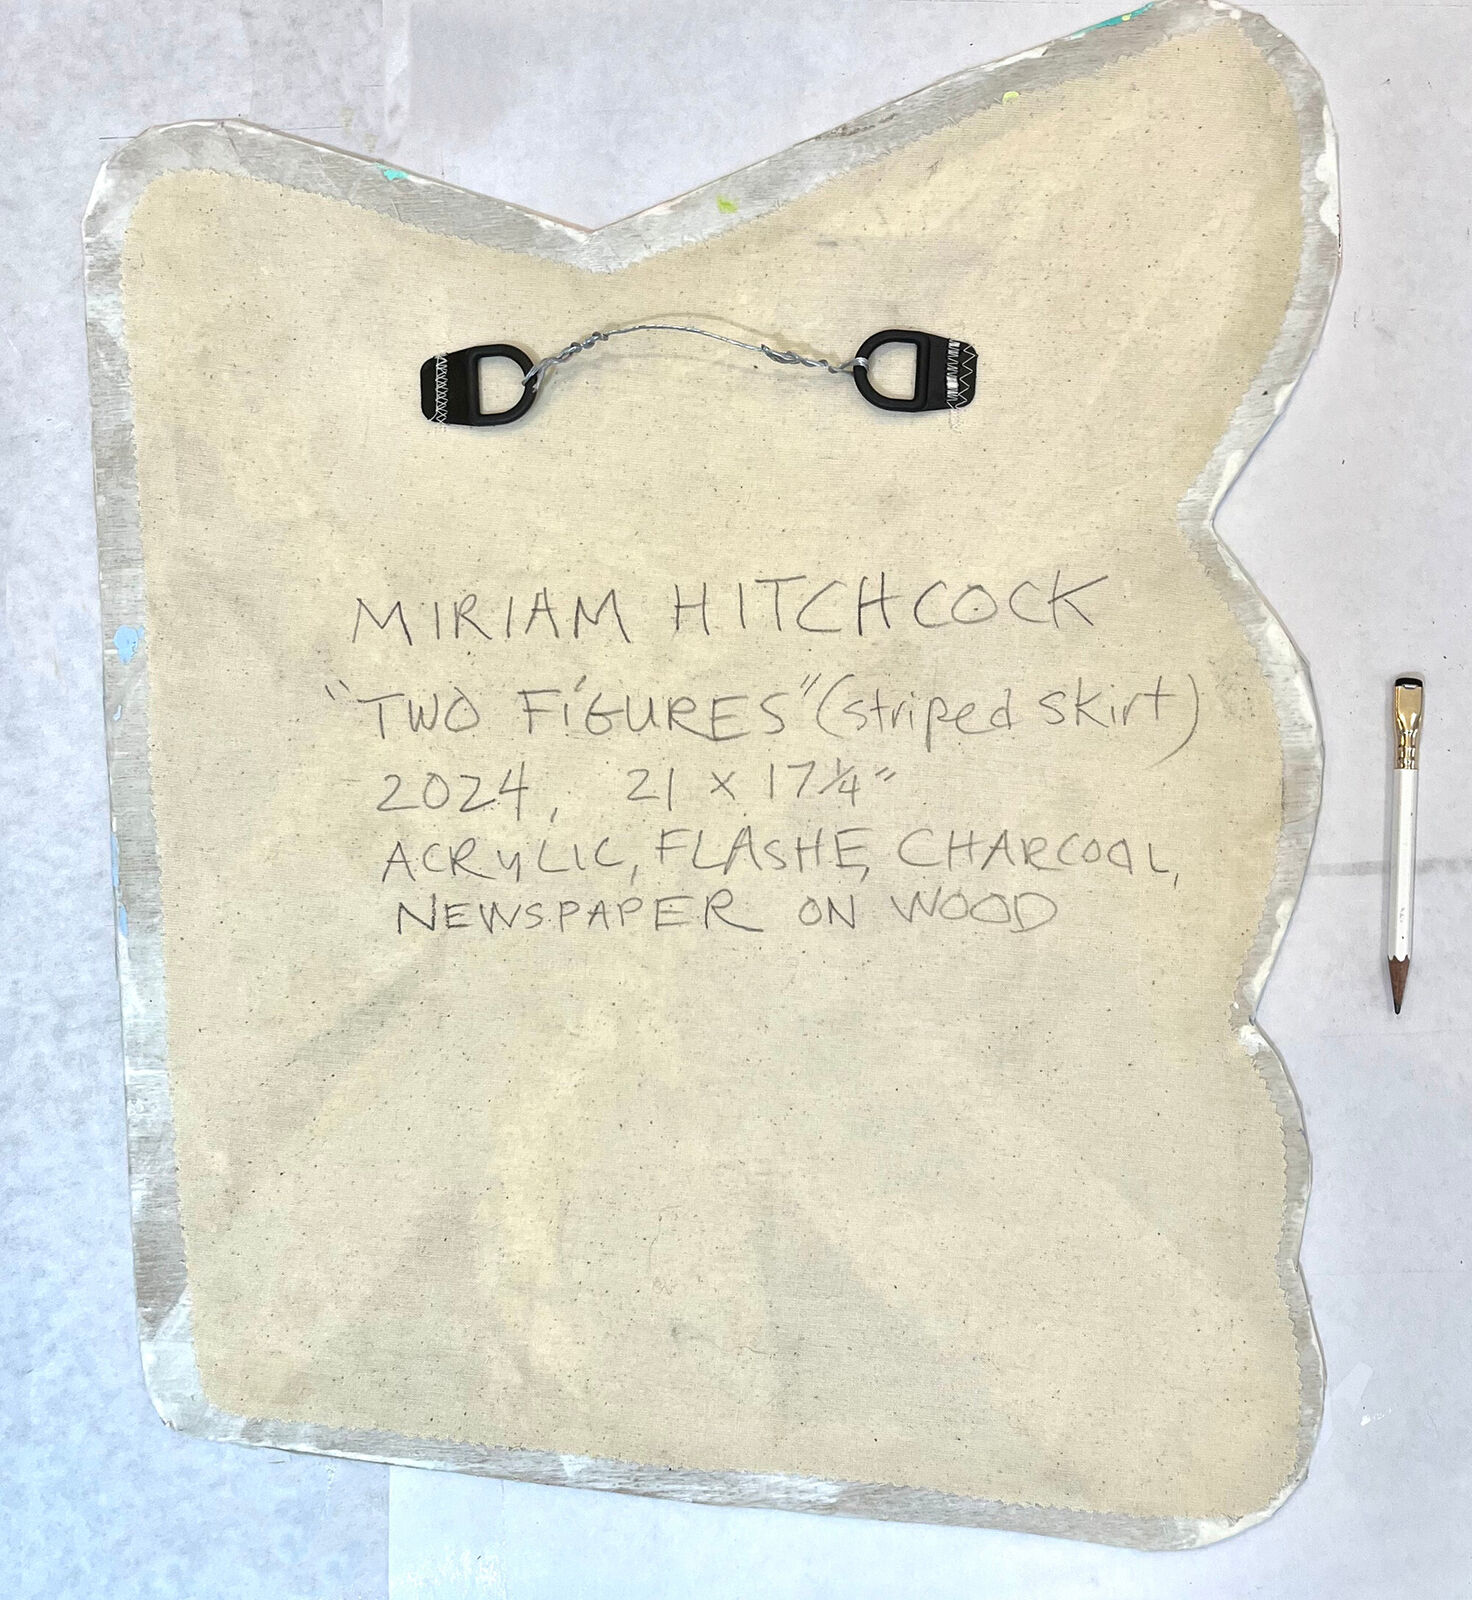 MIRIAM HITCHCOCK
"TWO FIGURES" (striped skirt)
2024, 21 x 17 1/4"
ACRYLIC, FLASHE, CHARCOAL,
NEWSPAPER ON WOOD